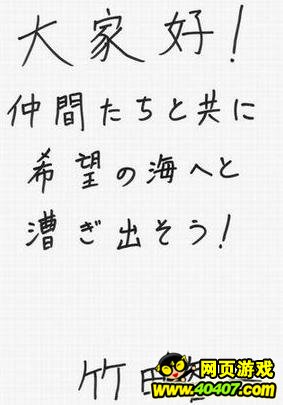 大家好！
仲間たちと共に
希望の海へと
漕ぎ出そう！
竹田
网页游戏
www.40407.com